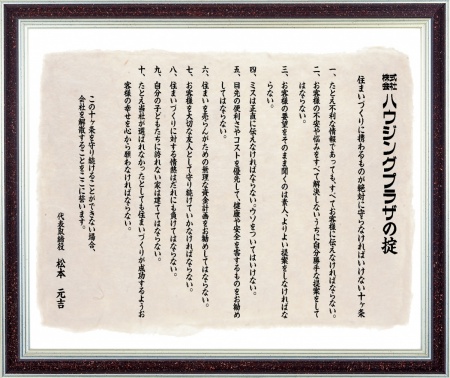 株式会社 ハウジングプラザの掟
住まいづくりに携わるものが絶対に守らなければいけない十ヶ条
一、たとえ不利な情報であっても、すべてお客様に伝えなければならない。
二、お客様の不安や悩みをすべて解決しないうちに自分勝手な提案をして
はならない。
三、お客様の要望をそのまま聞くのは素人、よりよい提案をしなければな
らない。
四、ミスは正直に伝えなければならない。ウソをついてはいけない。
五、目先の便利さやコストを優先して、健康や安全を害するものをお勧め
してはならない。
六、住まいを売らんがための無理な資金計画をお勧めしてはならない。
七、お客様を大切な友人として守り続けていかなければならない。
八、住まいづくりに対する情熱はだれにも負けてはならない。
九、自分の子どもたちに誇れない家は建ててはならない。
十、たとえ当社が選ばれなかったとしても住まいづくりが成功するようお
客様の幸せを心から願わなければならない。
この十ヶ条を守り続けることができない場合、
会社を解散することをここに誓います。
代表取締役 松本 元吉